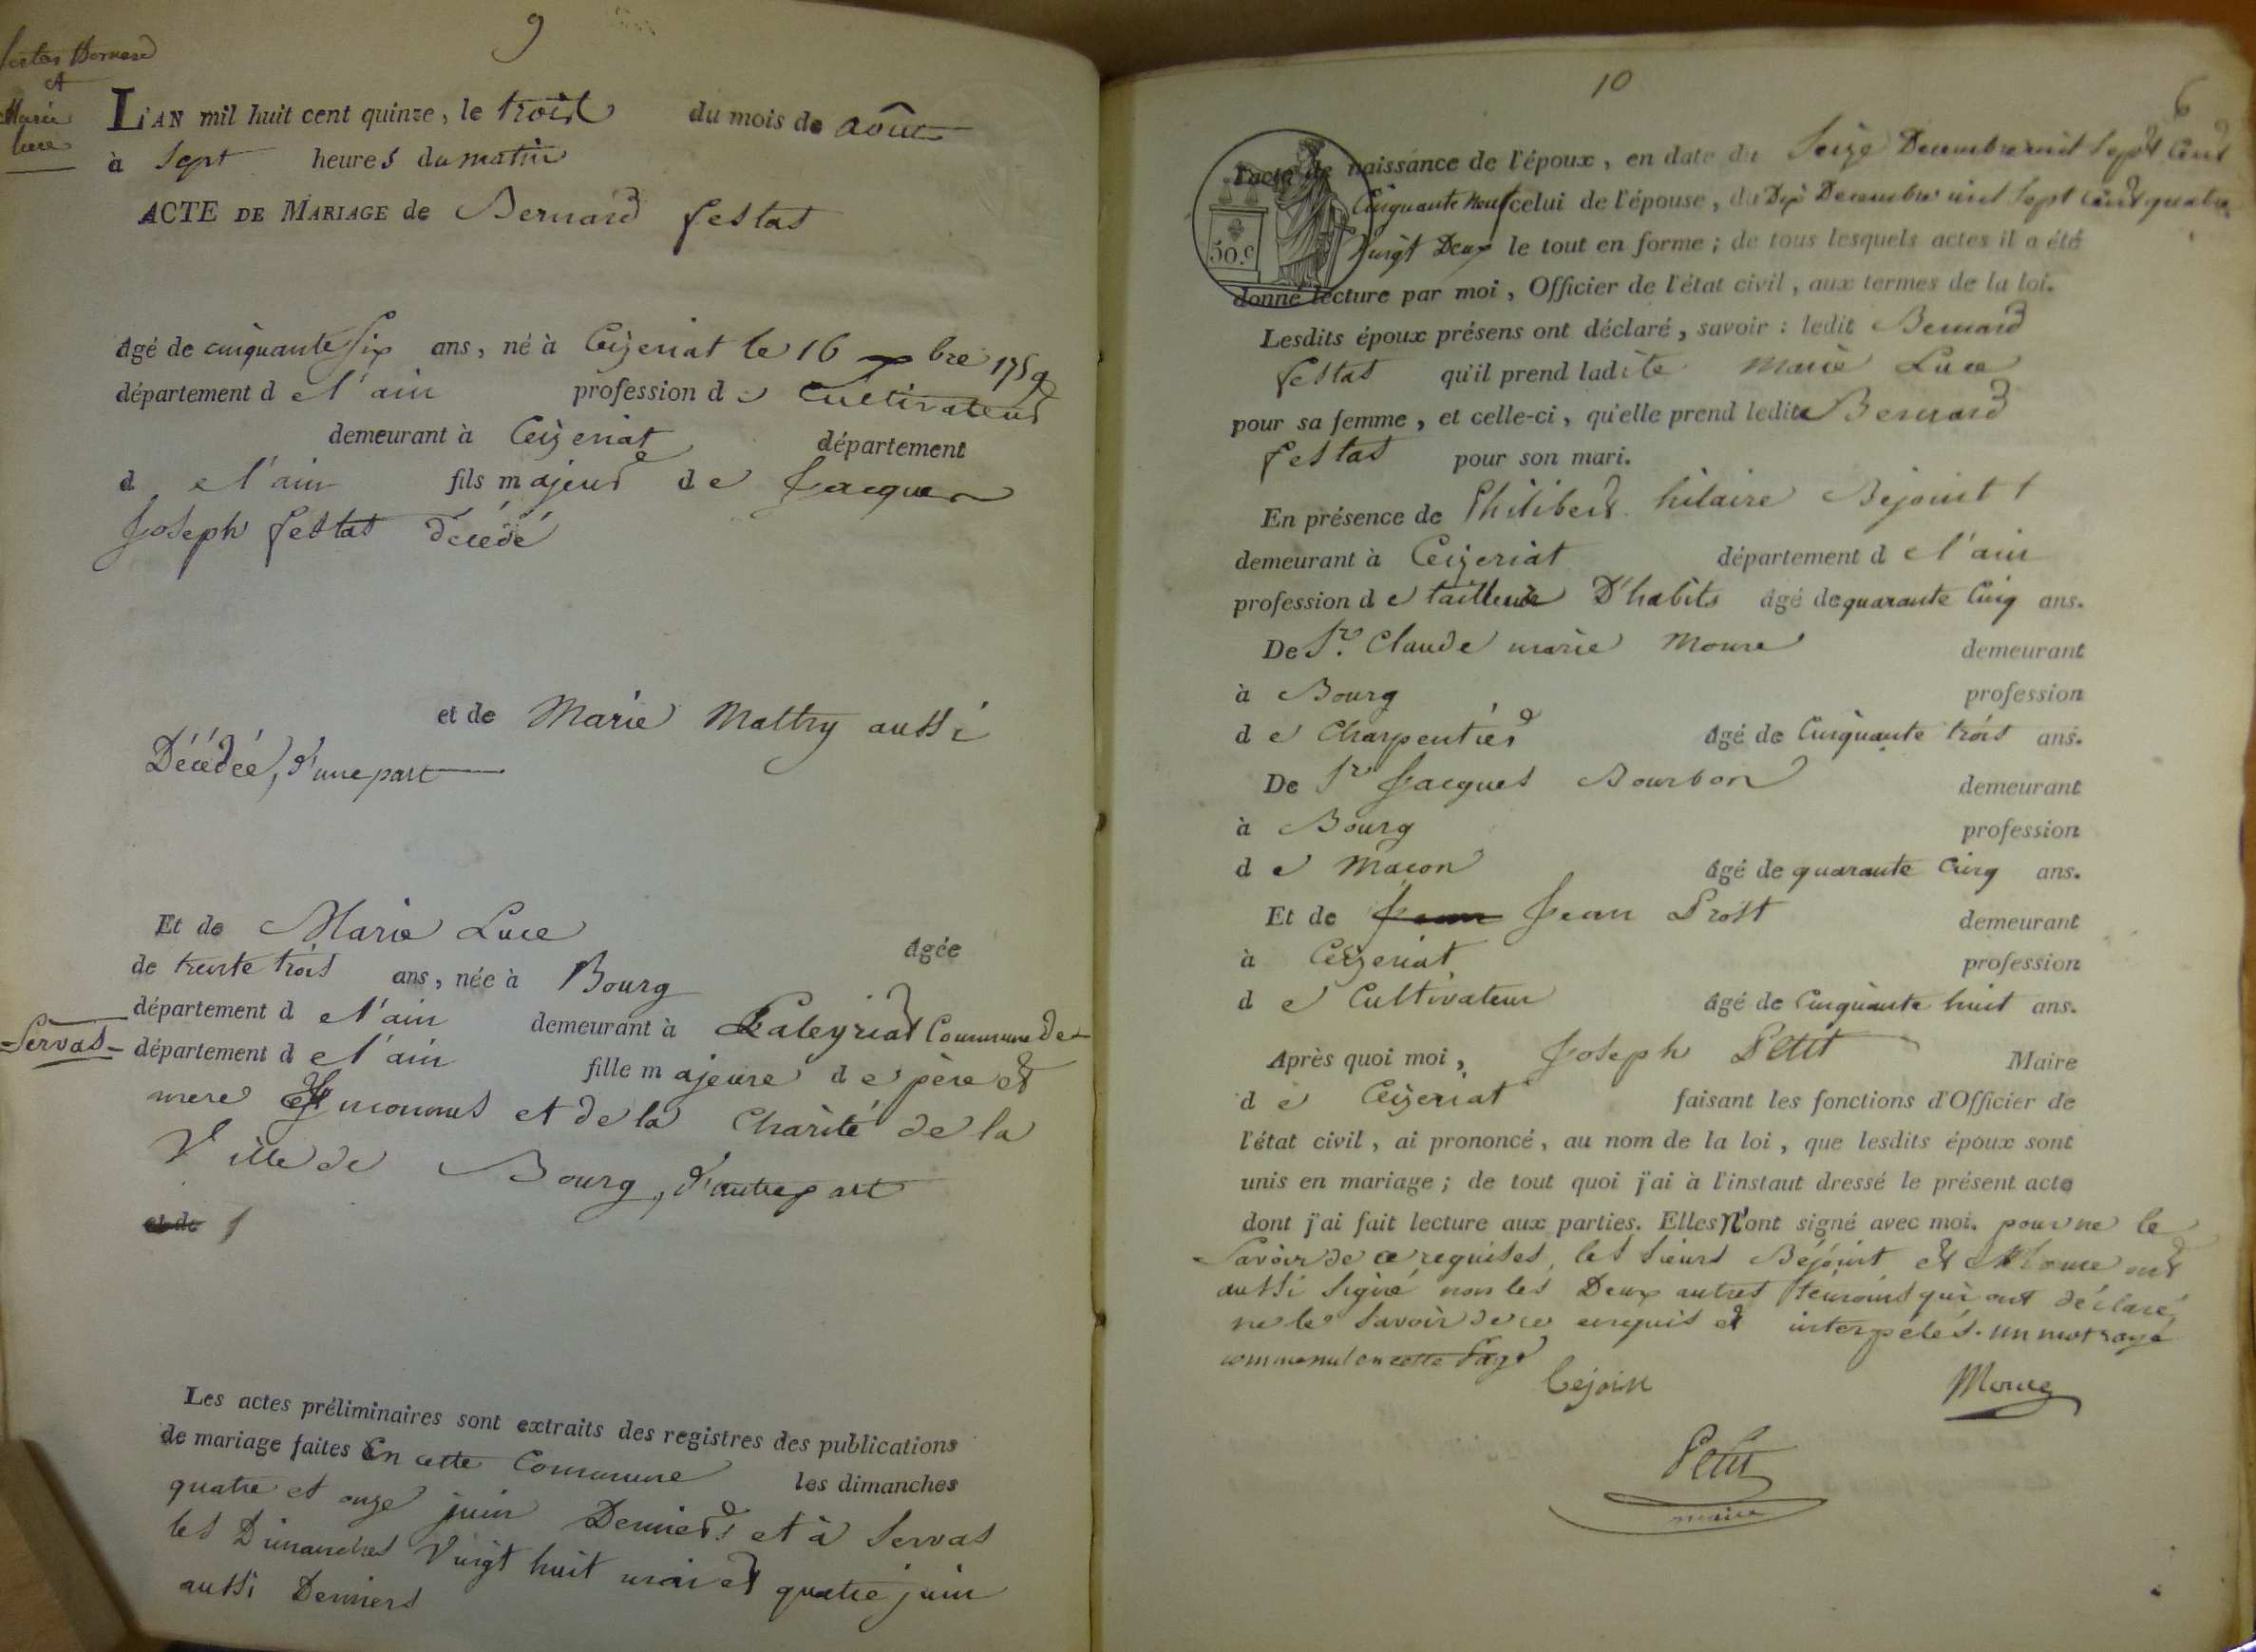 9
festas Bernard
et
Marie
Luce
L'AN mil huit cent quinze, le trois du mois de août
à Sept heures du matin
ACTE DE MARIAGE de Bernard festas
âgé de cinquante six ans, né à Ceizeriat le 16 xbre 1759
département de l'ain profession de Cultivateur
demeurant à Ceizeriat département
de l'ain fils majeur de Jacques
Joseph festas décédé
et de Marie Mattry aussi
Décédée, d'une part
Et de Marie Luce âgée
de trente trois ans, née à Bourg
département de l'ain demeurant à Laleyriat Commune de
Servas département de l'ain fille majeure de père et
mere inconnus et de la Charité de la
Ville de Bourg, d'autre part
et de
Les actes préliminaires sont extraits des registres des publications
de mariage faites En cette Commune les dimanches
quatre et onze juin Derniers et à Servas
les Dimanches Vingt huit mai et quatre juin
aussi Derniers
10
6
l'acte de naissance de l'époux, en date du Seize Decembre mil Sept Cent
Cinquante Neuf celui de l'épouse, du Dix Decembre mil Sept cent quatre
Vingt Deux le tout en forme ; de tous lesquels actes il a été
50.c
donné lecture par moi, Officier de l'état civil, aux termes de la loi.
Lesdits époux présens ont déclaré, savoir : ledit Bernard
festas qu'il prend ladite Marie Luce
pour sa femme, et celle-ci, qu'elle prend ledit Bernard
festas pour son mari.
En présence de Philibert hilaire Bejoint
demeurant à Ceizeriat département de l'ain
profession de tailleur D'habits âgé de quarante Cinq ans.
De Sr. Claude marie Moure demeurant
à Bourg profession
de Charpentier âgé de Cinquante trois ans.
De Sr Jacques Bourbon demeurant
à Bourg profession
de Macon âgé de quarante Cinq ans.
Et de Jean Jean Prost demeurant
à Ceizeriat profession
de Cultivateur âgé de Cinquante huit ans.
Après quoi moi, Joseph Petit Maire
de Ceizeriat faisant les fonctions d'Officier de
l'état civil, ai prononcé, au nom de la loi, que lesdits époux sont
unis en mariage ; de tout quoi j'ai à l'instaut dressé le présent acte
dont j'ai fait lecture aux parties. Elles N'ont signé avec moi. pour ne le
Savoir de ce requises, les Sieurs Béjoint et Moure ont
aussi Signé non les Deux autres témoins qui ont déclaré
ne le Savoir de ce enquis et interpelés. un mot rayé
comme nul en cette Page
bejoint Moure
Petit
maire